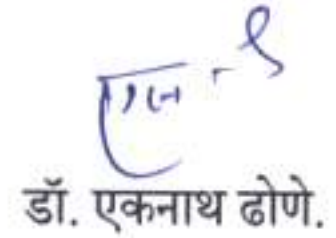 डॉ. एकनाथ ढोणे.